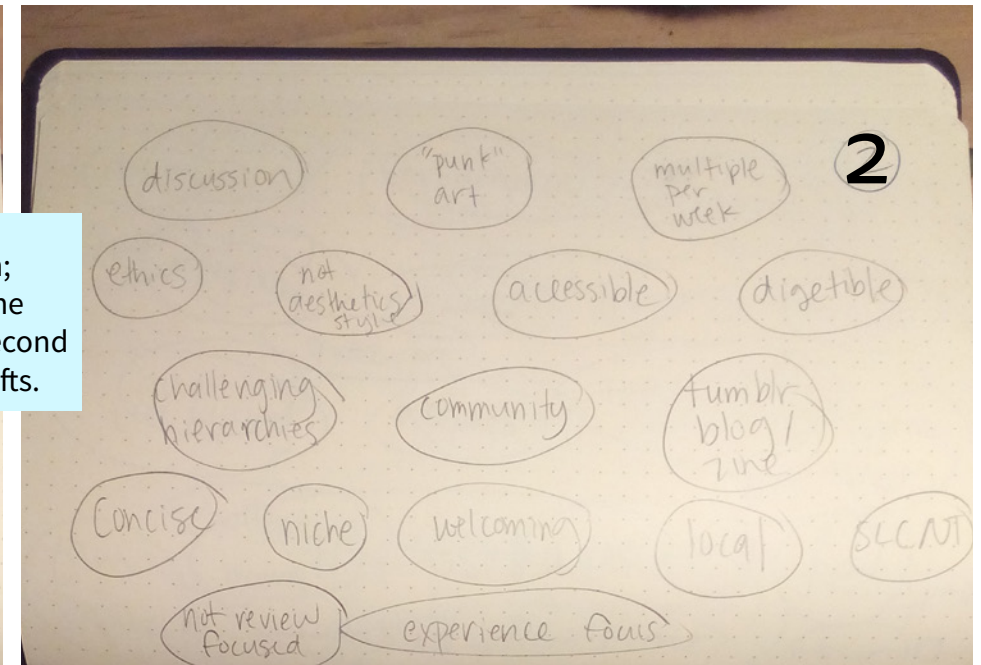 discussion
"punk"
art
multiple
per
week
2
ethics
not
aesthetics
style
accessible
digetible
challenging
hierarchies
community
tumblr
blog/
zine
Concise
niche
welcoming
local
not review
focused
experience focus
econd
fts.